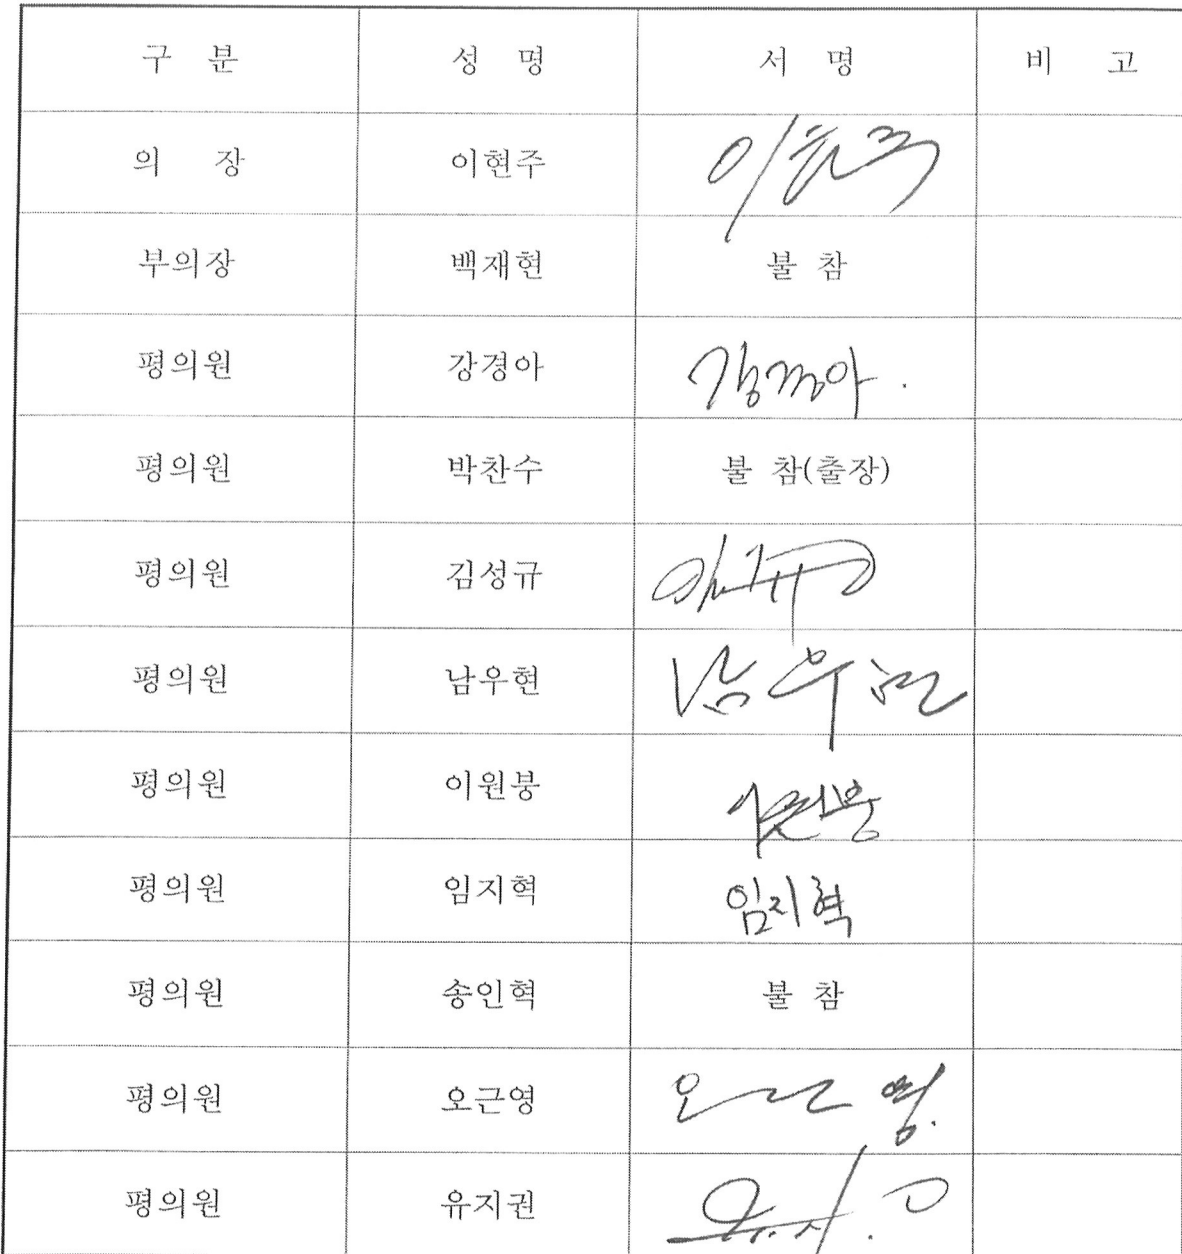 구 분 성 명 서 명 비 고
의 장 이현주 이현주
부의장 백재현 불 참
평의원 강경아 강경아.
평의원 박찬수 불 참(출장)
평의원 김성규
평의원 남우현 남우현
평의원 이원붕 이원붕
평의원 임지혁 임지혁
평의원 송인혁 불 참
평의원 오근영 오근영.
평의원 유지권